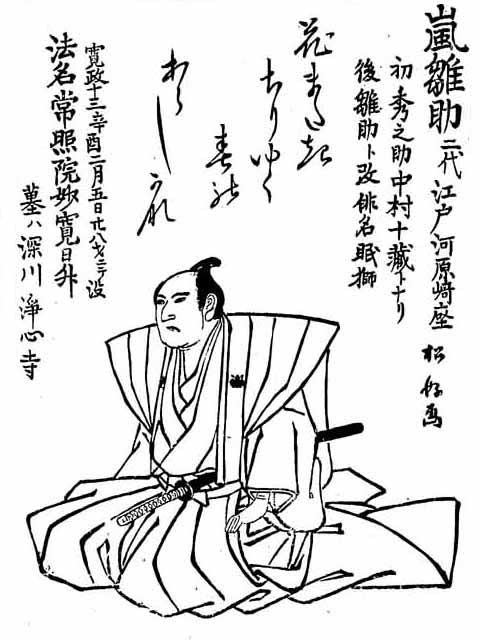 嵐雛助二代江戸河原﨑座
初秀之助中村十蔵トナリ
後雛助ト改俳名眠獅
松好画
花まゝ
ちりゆく
春の
あらし
寛政十三辛酉二月五日廿八才ニテ没
法名常照院妙寛日升
墓ハ深川浄心寺